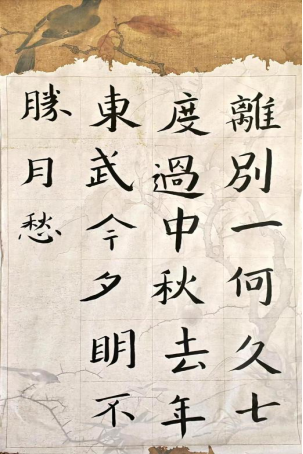 離別一何久七
度過中秋去年
東武今夕明不
勝月愁